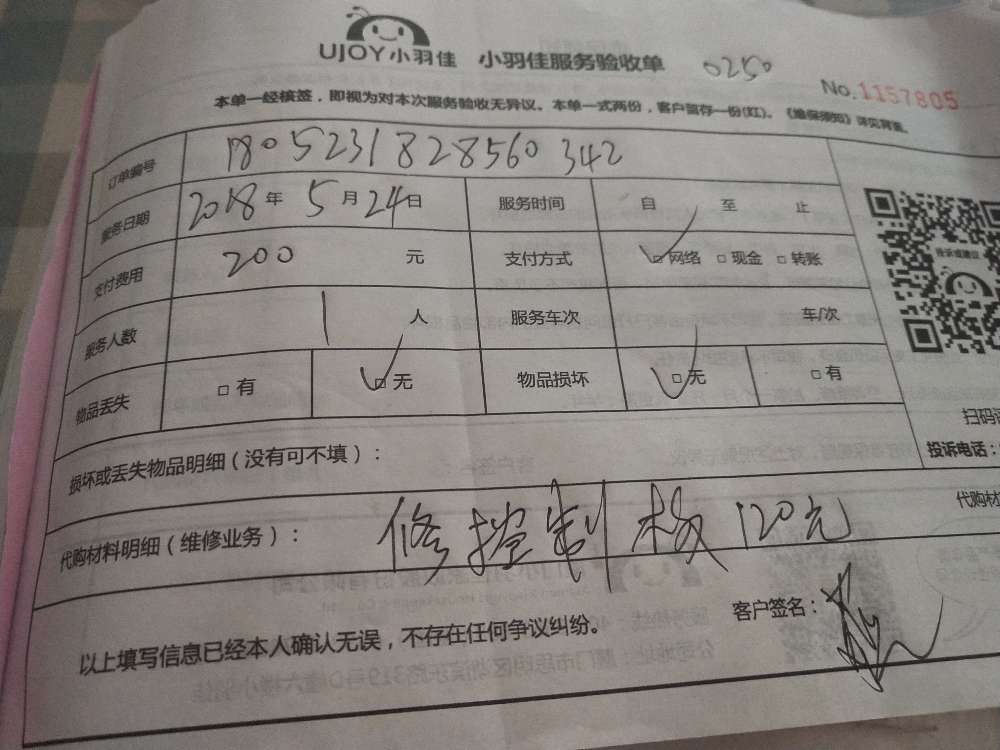 UJOY小羽佳 小羽佳服务验收单 0250
No.1157805
本单一经核签，即视为对本次服务验收无异议。本单一式两份，客户留存一份(红)。《维保须知》详见背面。
订单编号 1805231828560342
服务日期 2018年5月24日 服务时间 自 至 止
支付费用 200 元 支付方式 □网络 □现金 □转账
服务人数 1 人 服务车次 车/次
物品丢失 □有 □无 物品损坏 □无 □有
投诉或建议
扫码
投诉电话：
损坏或丢失物品明细（没有可不填）：
代购材
代购材料明细（维修业务）： 修控制板120元
以上填写信息已经本人确认无误，不存在任何争议纠纷。 客户签名：